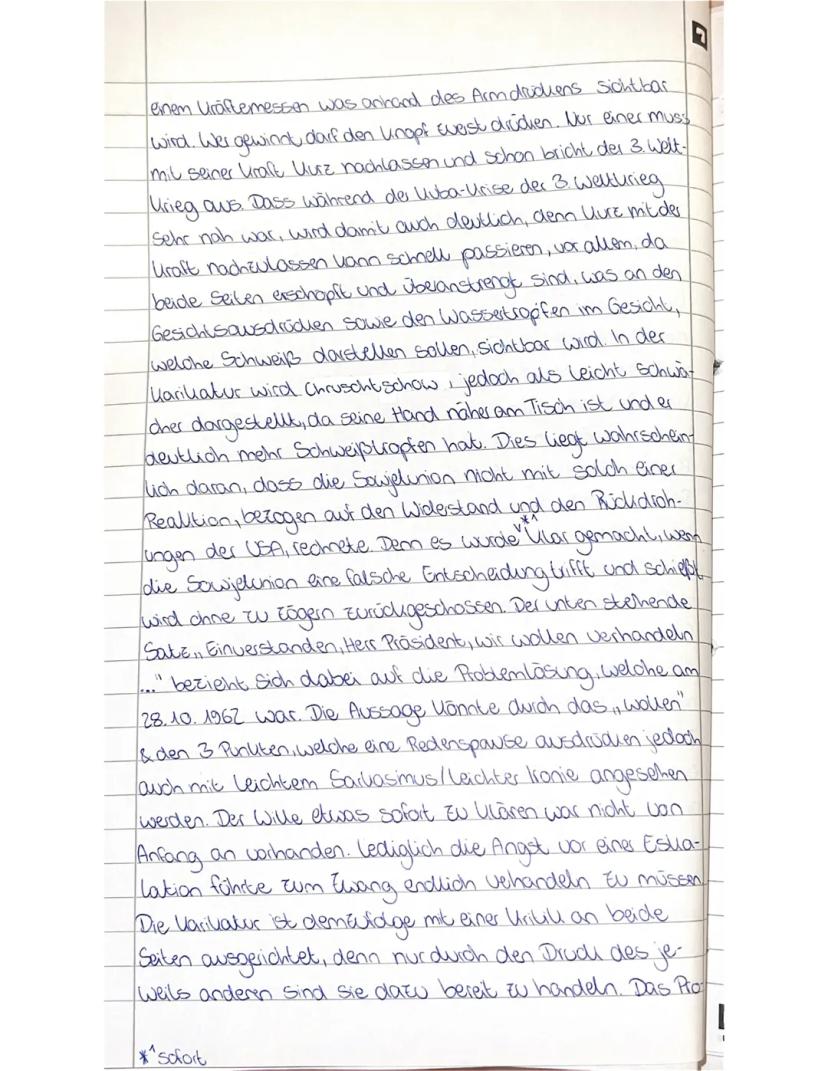 einem Kräftemessen was anhand des Armdrückens sichtbar
wird. Wer gewinnt, darf den Knopf zuerst drücken. Nur einer muss
mit seiner Kraft kurz nachlassen und schon bricht der 3. Welt-
krieg aus. Dass während der Kuba-Krise der 3. Weltkrieg
sehr nah war, wird damit auch deutlich, denn kurz mit der
Kraft nachzulassen kann schnell passieren, vor allem, da
beide Seiten erschöpft und überanstrengt sind, was an den
Gesichtsausdrücken sowie den Wassertropfen im Gesicht,
welche Schweiß darstellen sollen, sichtbar wird. In der
Karikatur wird Chruschtschow, jedoch als leicht schwä-
cher dargestellt, da seine Hand näher am Tisch ist und er
deutlich mehr Schweißtropfen hat. Dies liegt wahrschein-
lich daran, dass die Sowjetunion nicht mit solch einer
Reaktion, bezogen auf den Widerstand und den Rückdroh-
ungen der USA, rechnete. Denn es wurde *¹ klar gemacht, wenn
die Sowjetunion eine falsche Entscheidung trifft und schießt
wird ohne zu zögern zurückgeschossen. Der unten stehende
Satz „Einverstanden, Herr Präsident, wir wollen verhandeln
..." bezieht sich dabei auf die Problemlösung, welche am
28.10.1962 war. Die Aussage könnte durch das „wollen"
& den 3 Punkten, welche eine Redenspause ausdrücken jedoch
auch mit leichtem Sarkasmus/leichter Ironie angesehen
werden. Der Wille etwas sofort zu klären war nicht von
Anfang an vorhanden. Lediglich die Angst vor einer Eska-
lation führte zum Zwang endlich vehandeln zu müssen.
Die Karikatur ist demzufolge mit einer Kritik an beide
Seiten ausgerichtet, denn nur durch den Druck des je-
weils anderen sind sie dazu bereit zu handeln. Das Pro-
*¹ sofort